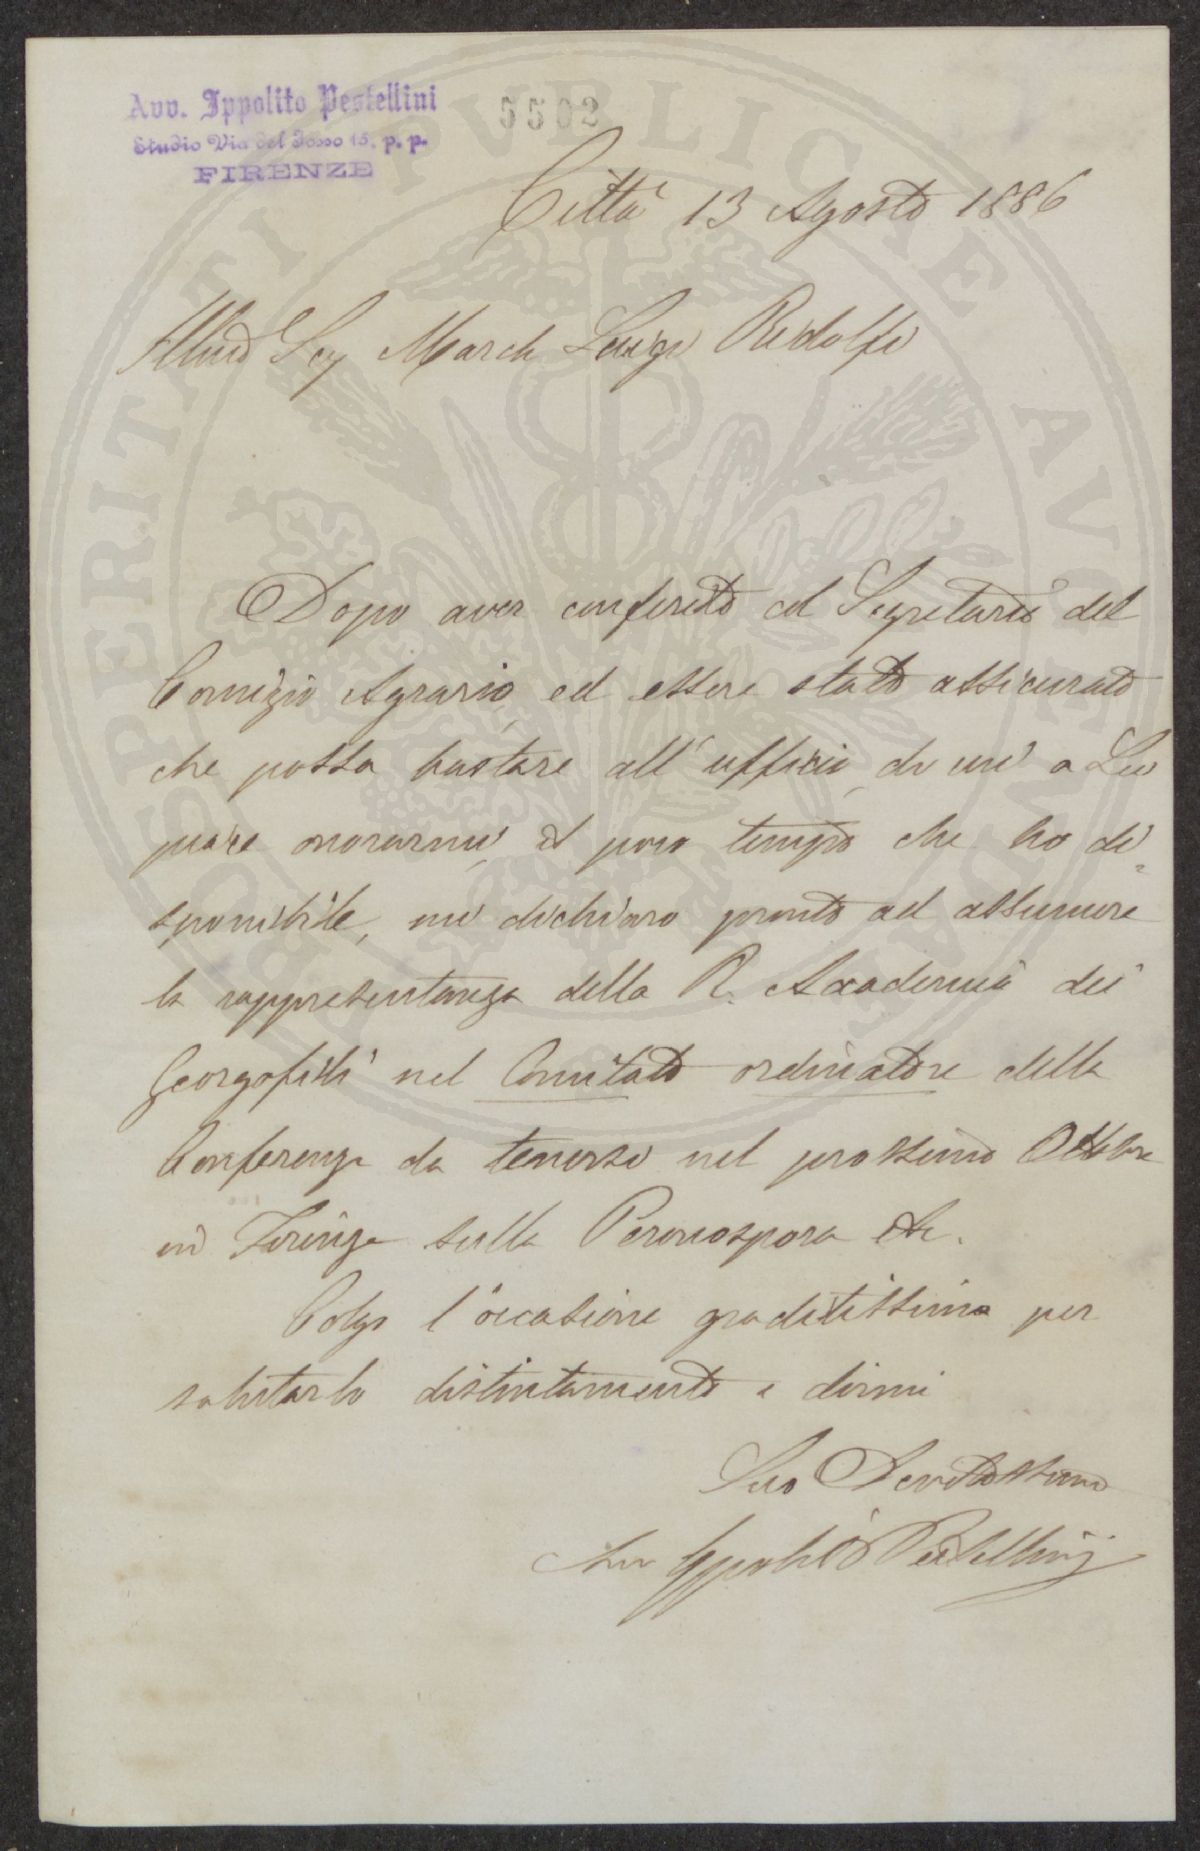 Avv. Ippolito Pestellini
Studio Via del Fosso 15. p. p.
FIRENZE
5502
Città 13 Agosto 1886
Illmo Sig March Luigi Ridolfi
Dopo aver conferito col Segretario del
Comizio Agrario, ed essere stato assicurato
che possa bastare all'ufficio, di cui a Lei
piace onorarmi, il poco tempo che ho di-
sponibile, mi dichiaro pronto ad assumere
la rappresentanza della R. Accademia dei
Georgofili nel Comitato ordinatore della
Conferenza da tenersi nel prossimo Ottobre
in Firenze sulla Peronospora etc.
Colgo l'occasione graditissima per
salutarlo distintamente e dirmi
Suo Devotissimo
Avv Ippolito Pestellini
PROSPERITATI PVBLICAE AVGENDAE